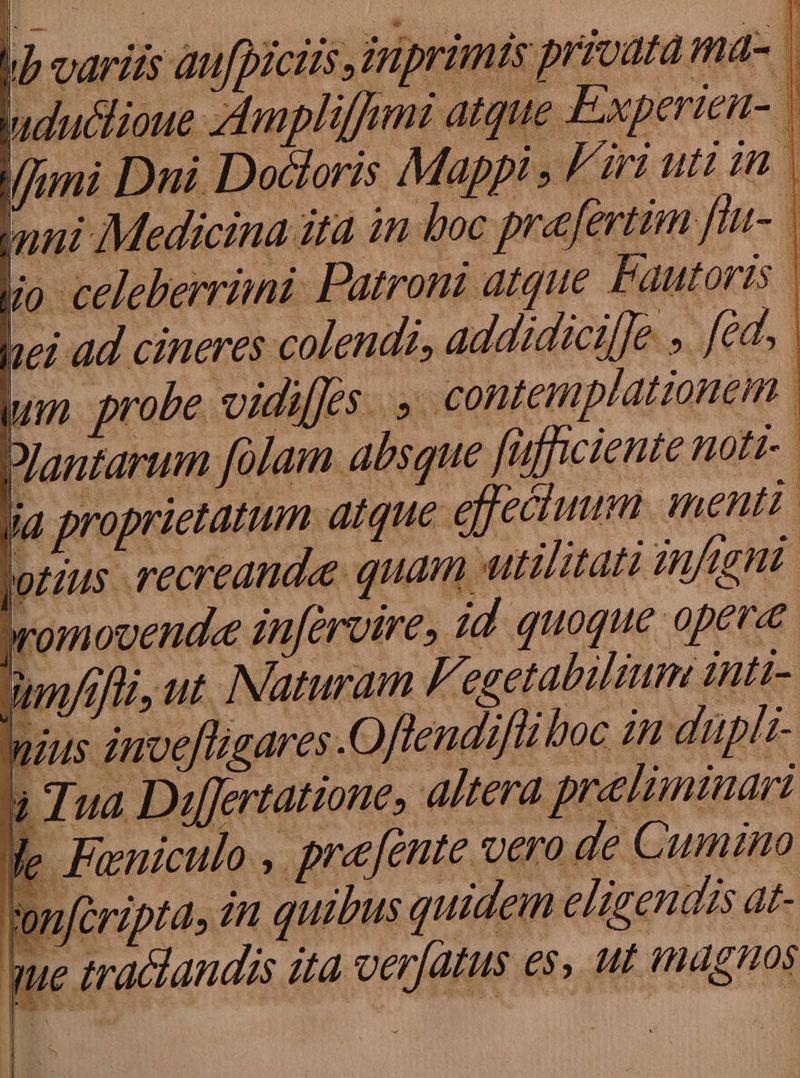 ub variis auſpiciis, inprimis privata ma-
nuductione Ampliſſimi atque Experien-
iſſimi Dni Doctoris Mappi, Viri uti in
mni Medicina ita in hoc præſertim ſtu-
io celeberrimi Patroni atque Fautoris
nei ad cineres colendi, addidiciſſe, ſed,
um probe vidiſſes, contemplationem
Plantarum ſolam absque ſufficiente noti-
ia proprietatum atque effectuum menti
otius recreandæ quam utilitati inſigni
romovendæ inſervire, id quoque operæ
imſiſti, ut Naturam Vegetabilium inti-
nius inveſtigares. Oſtendiſti hoc in dupli-
i Tua Diſſertatione, altera præliminari
de Fœniculo, præſente vero de Cumino
onſcripta, in quibus quidem eligendis at-
que tractandis ita verſatus es, ut magnos